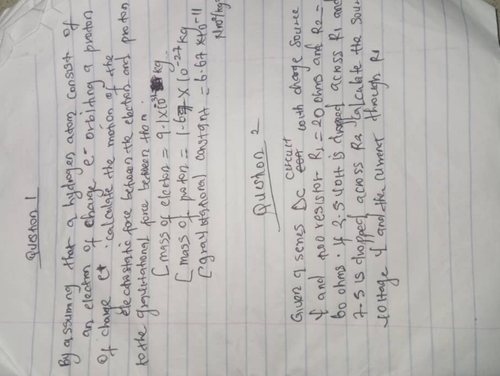 QUESTION 1
By assuming that a hydrogen atom consist of
an electron of charge e- orbiting a proton
of charge e+. calculate the motion of the
electrostatic force between the electron and proton
to the gravitational force between them.
[mass of electron = 9.1x10-31 kg
[mass of proton = 1.67 x 10-27 kg
[gravitational constant = 6.67 x10-11
Nm2/kg2
QUESTION 2
Given a series DC circuit with charge source
V and two resistor R1 = 20 ohms and R2 =
60 ohms. If 2.5 Volt is dropped across R1 and
7.5 is dropped across R2 calculate the source
voltage V and the current through R1